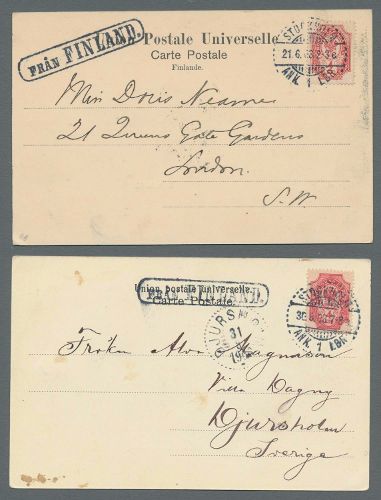 FRÅN FINLAND.
Postale Universelle
Carte Postale
Finlande.
STOCKHOLM
21.6.
ANK. 1 LBR
Miss Doris Neame
21 Queens Gate Gardens
London.
S.W
Union postale universelle.
FRÅN FINLAND.
Carte Postale.
STOCKHOLM
ANK. 1 LBR
DJURSHOLM
31
Fröken Alva Magnason
Villa Dagny
Djursholm
Sverige